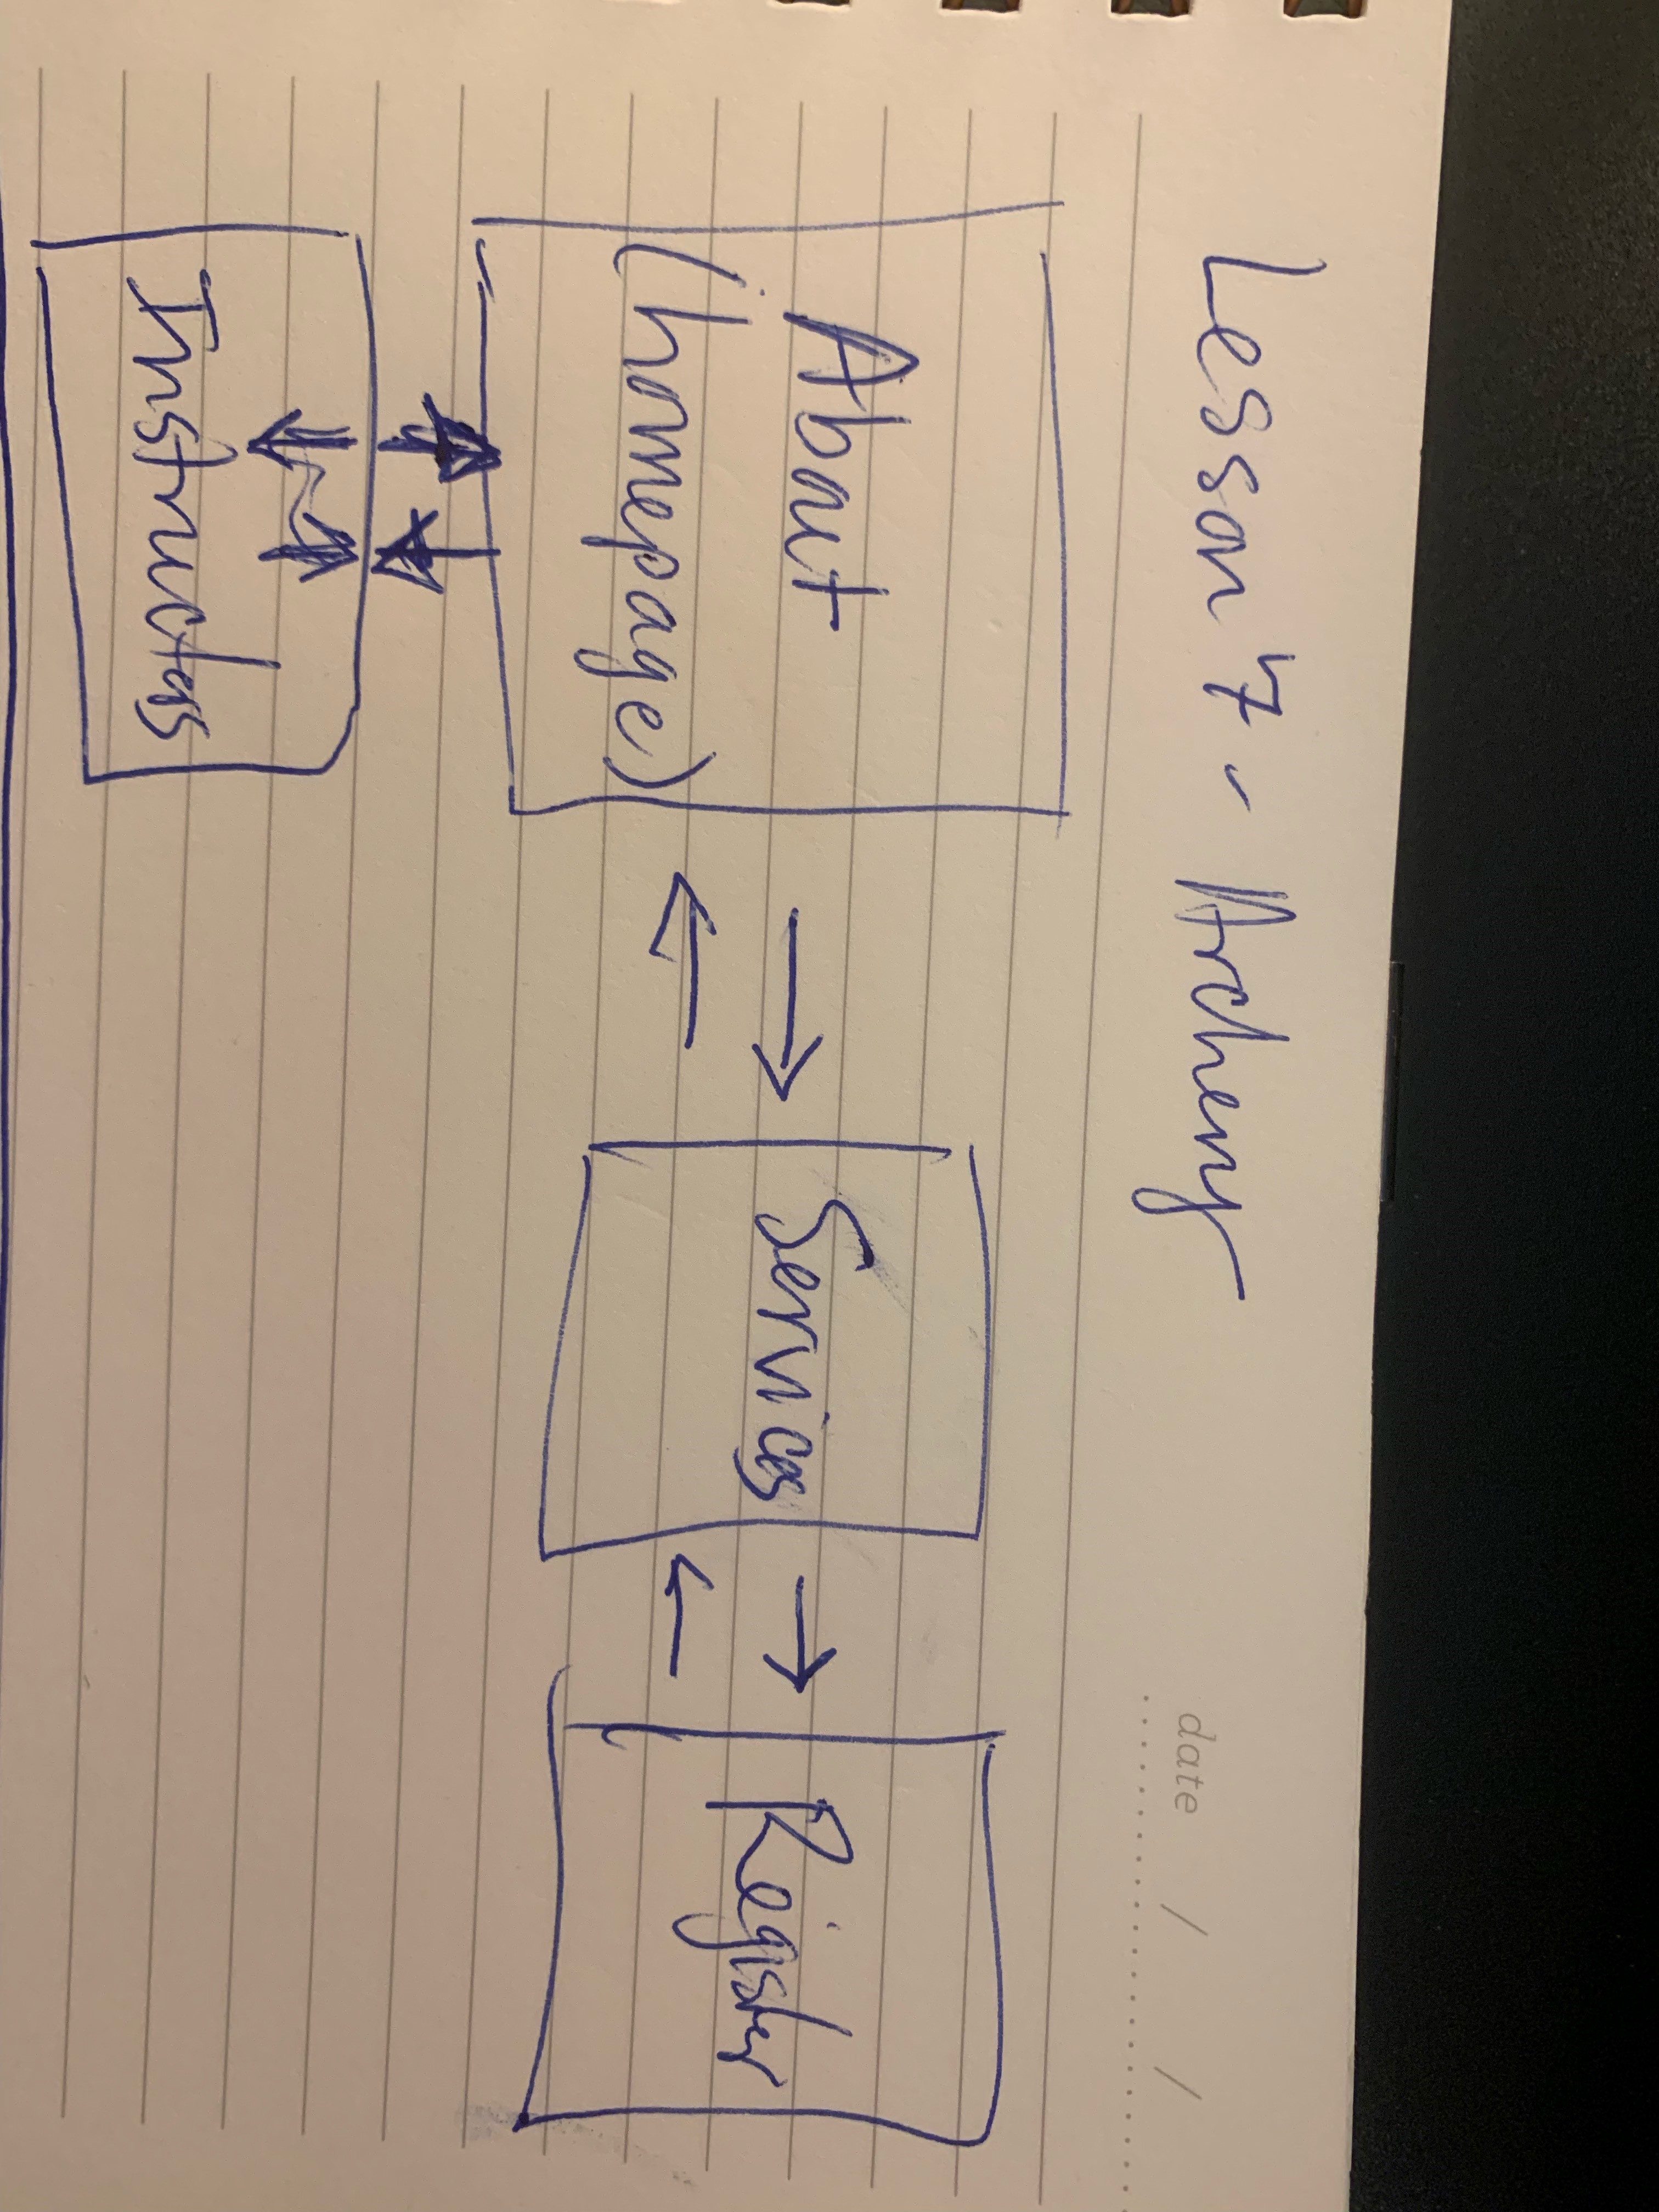 Lesson 7 - Archery
date / /
About
(homepage)
Services
Register
Instructors